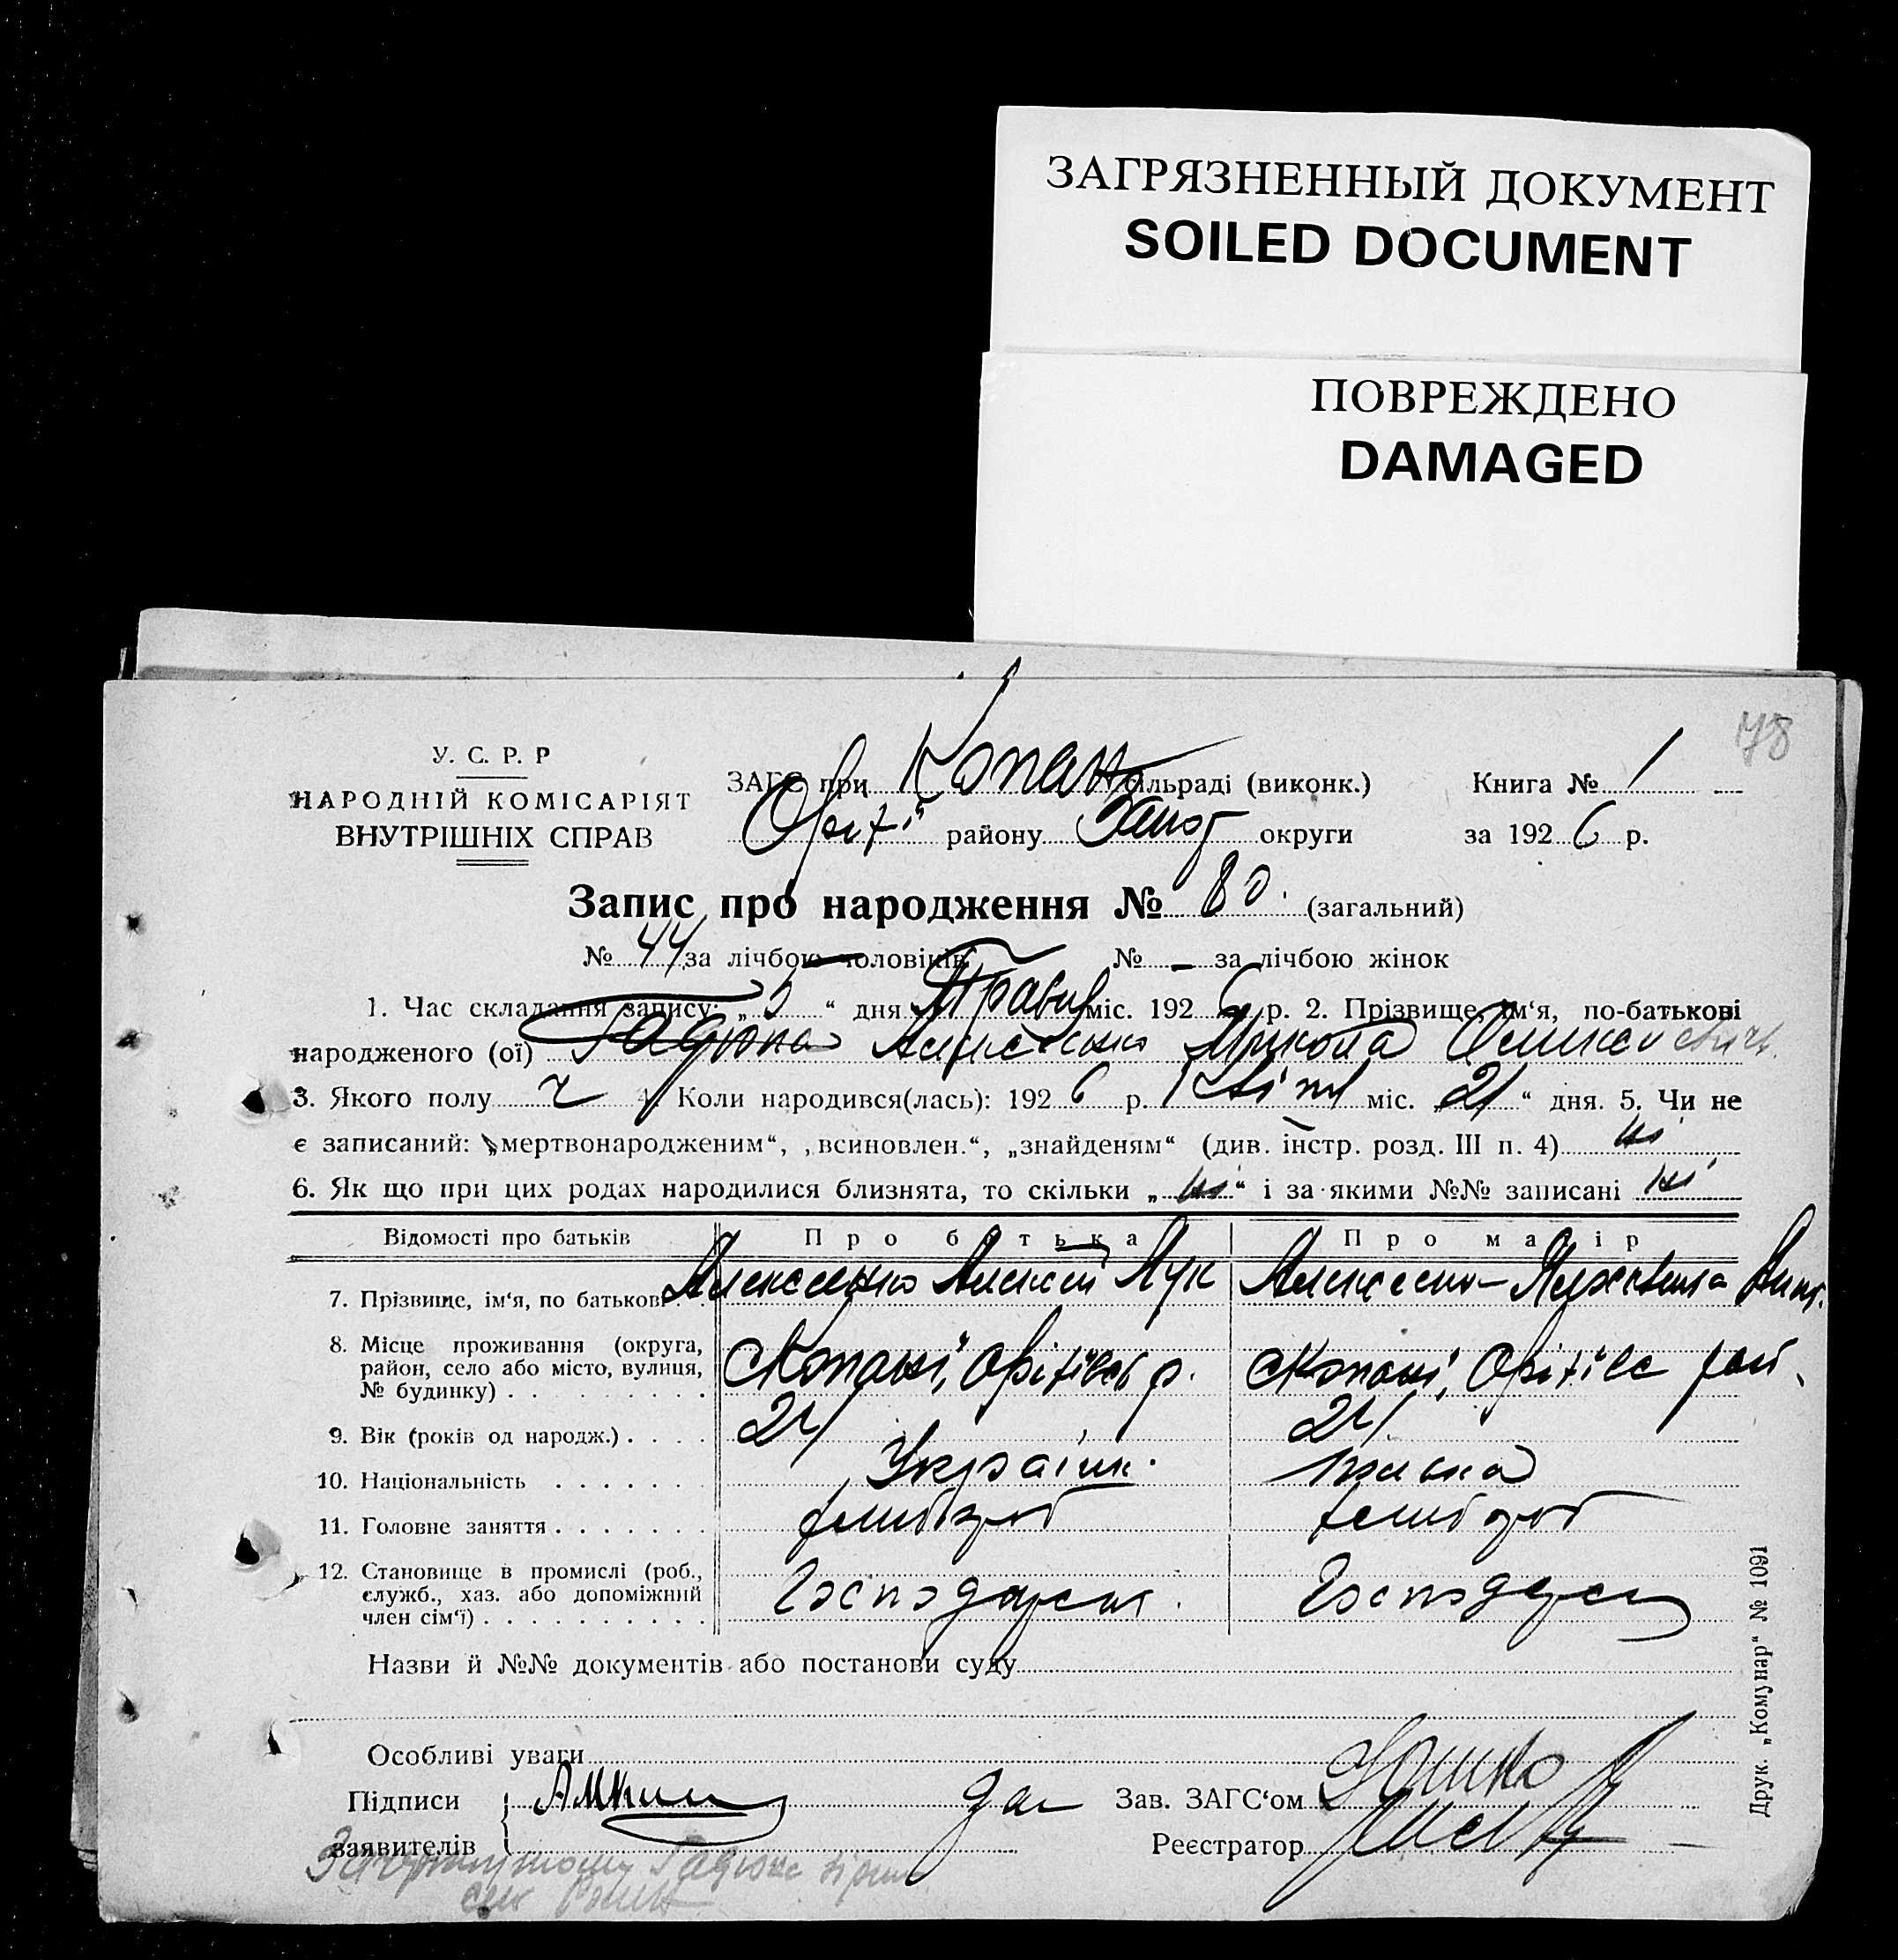 ЗАГРЯЗНЕННЫЙ ДОКУМЕНТ
SOILED DOCUMENT
ПОВРЕЖДЕНО
DAMAGED
78
У. С. Р. Р
НАРОДНІЙ КОМІСАРІЯТ
ВНУТРІШНІХ СПРАВ
ЗАГС при Копан сільраді (виконк.)
району Запор округи
Книга № 1
за 1926 р.
Запис про народження № 80. (загальний)
№ 44 за лічбою чоловіків № - за лічбою жінок
1. Час складання запису: „5“ дня Травня міс. 1926 р. 2. Прізвище, ім‘я, по-батькові
народженого (ої) Гадюка Алексеенко Микола
3. Якого полу ч 4. Коли народився(лась): 1926 р. Квітня міс. „21“ дня. 5. Чи не
є записаний: „мертвонародженим“, „всиновлен.“, „знайденям“ (див. інстр. розд. III п. 4) ні
6. Як що при цих родах народилися близнята, то скільки „ні“ і за якими №№ записані ні
Відомості про батьків Про батька Про матір
7. Прізвище, ім‘я, по батькові Алексеенко Алексей Лук
8. Місце проживання (округа,
район, село або місто, вулиця,
№ будинку) Копані, р. Копані, рай
9. Вік (років од народж.) 24 24
10. Національність Українк.
11. Головне заняття хлібороб хлібороб
12. Становище в промислі (роб.,
служб., хаз. або допоміжний
член сім‘ї)
Назви й №№ документів або постанови суду
Особливі уваги
Підписи
заявителів
Зав. ЗАГС‘ом
Реєстратор
Гадюка
Друк. „Комунар“ № 1091